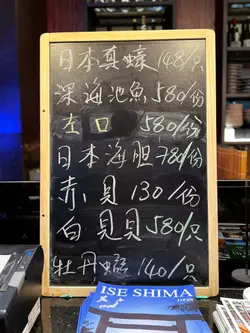 日本真蠔 148/只
深海池魚 580/份
左口 580/份
日本海胆 780/份
赤貝 130/份
白貝貝 580/只
牡丹蝦 140/只
ISE SHIMA
JAPAN